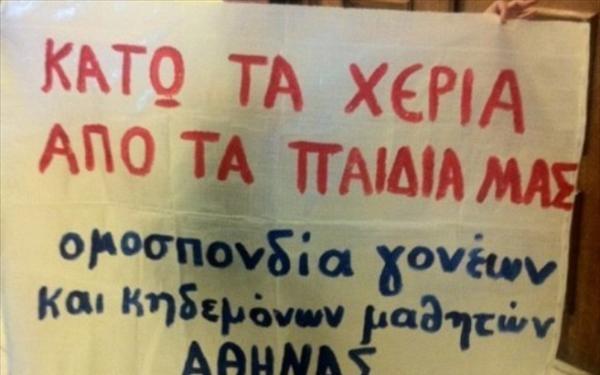 ΚΑΤΩ ΤΑ ΧΕΡΙΑ
ΑΠΟ ΤΑ ΠΑΙΔΙΑ ΜΑΣ
ομοσπονδία γονέων
και κηδεμόνων μαθητών
ΑΘΗΝΑΣ